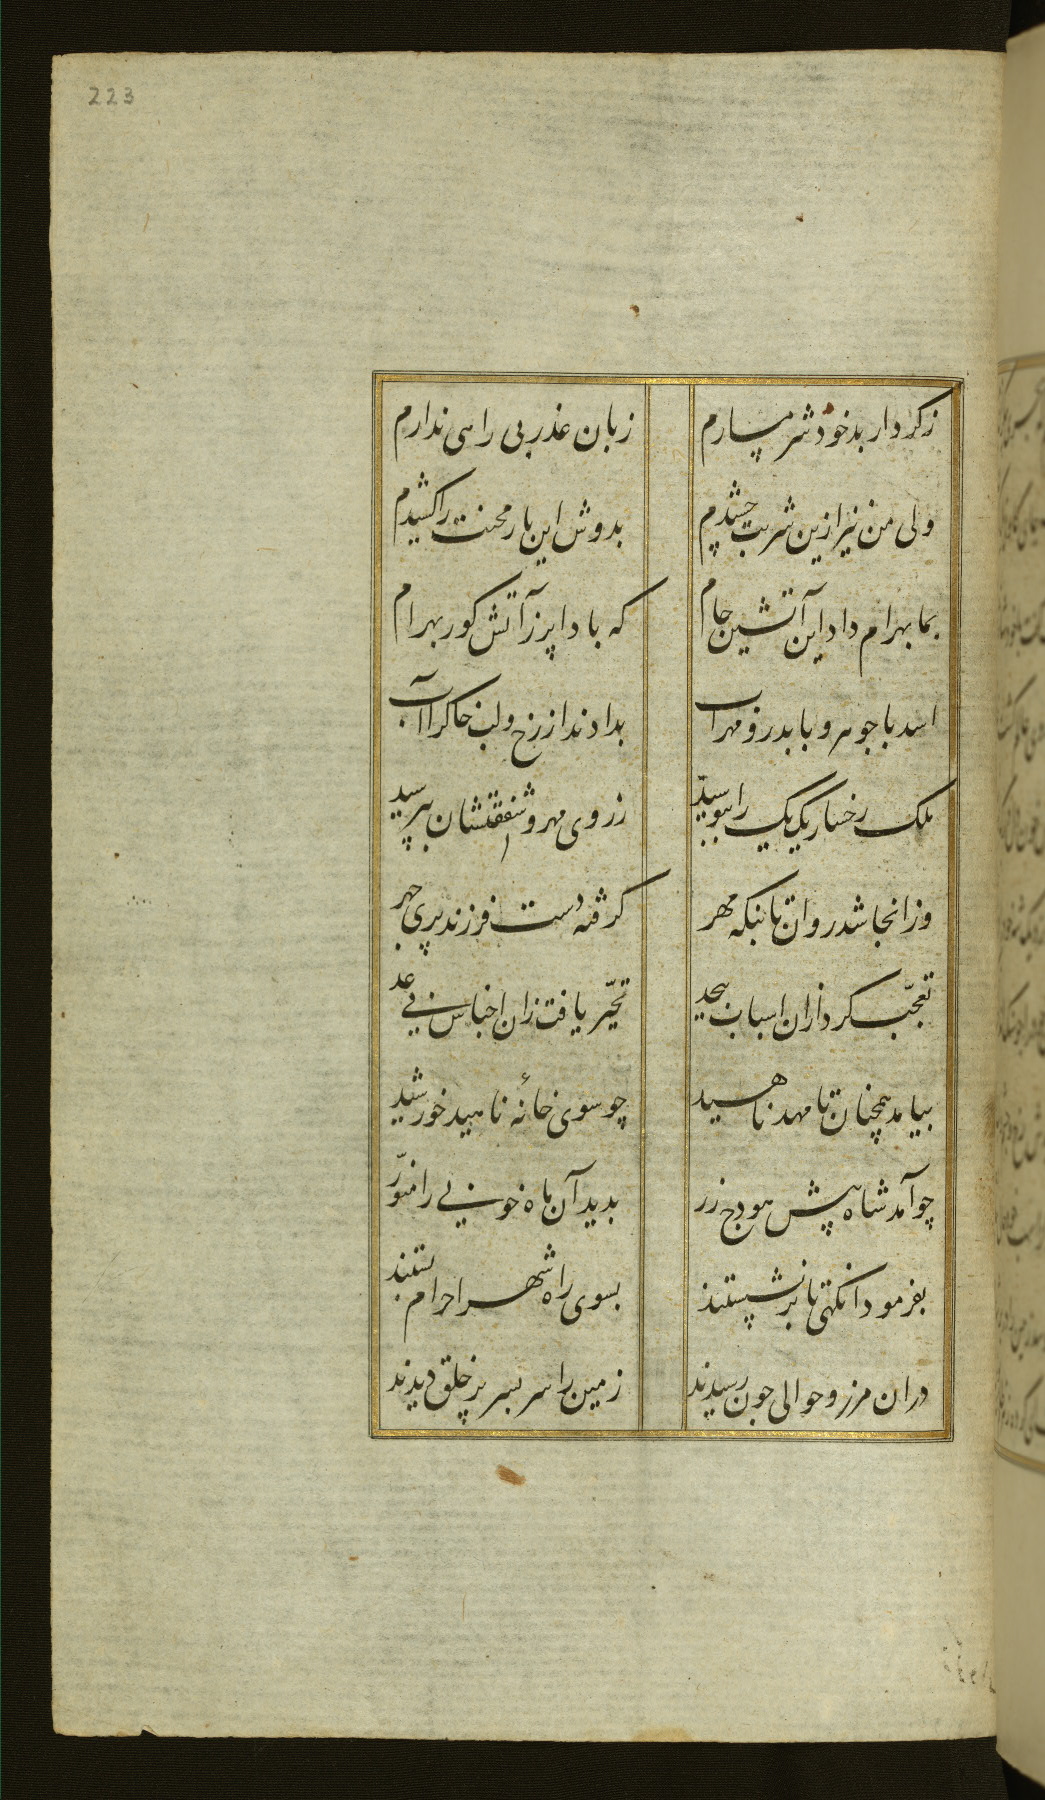 223
زکردار بد خود شرمسارم زبان عذر بی راهی ندارم
ولی من نیز ازین شربت چشیدم بدوش این بار محنت را کشیدم
بما بهرام داد این آتشین جام که بادا پر ز آتش کور بهرام
اسد با جوهر و با بدر و مهراب بدادند از رخ و لب خاکرا آب
ملک رخسار یک یک را ببوسید ز روی مهر و شفقتشان بپرسید
وزانجا شد روان تا بنکه مهر کرفته دست فرزند پری چهر
تعجّب کرد ازان اسباب بیحد تحیّر یافت زان اجناس بی عد
بیامد همچنان تا مهد ناهید چو سوی خانهٔ ناهید خورشید
چو آمد شاه پیش هودج زر بدید آن ماه خوبی را منوّر
بفرمود انکهی تا بر نشستند بسوی راه شهر احرام بستند
دران مرز و حوالی چون رسیدند زمین را سر بسر پر خلق دیدند